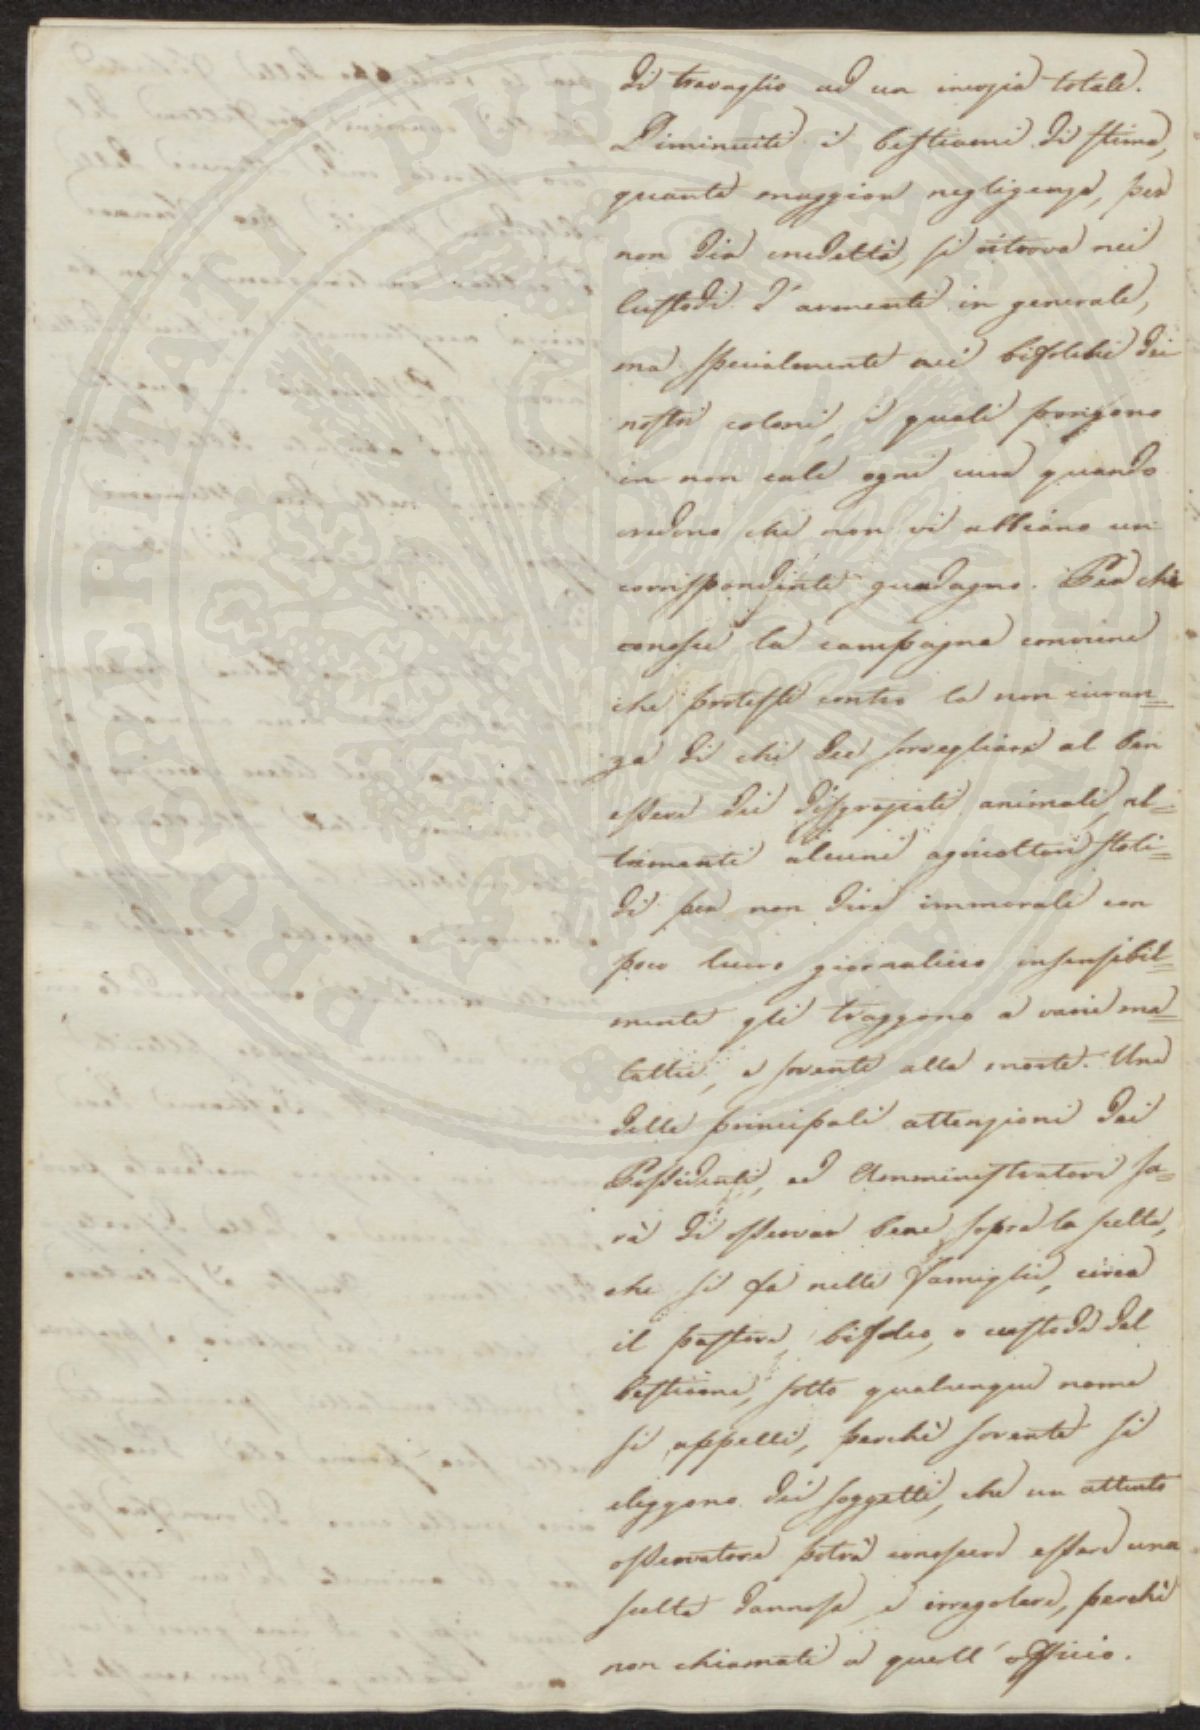 di travaglio ad un inerzia totale.
Diminuiti i bestiami di stima,
quanta maggior negligenza, per
non dir crudeltà, si ritrova nei
Custodi d'armenti in generale,
ma specialmente nei bifolchi dei
nostri coloni, i quali pongono
in non cale ogni cura quando
credono che non vi abbiano un
corrispondente guadagno. Per chi
conosce la campagna conviene
che protesti contro la non curan=
za di chi dee sorvegliare al ben
essere dei disgraziati animali, al=
trimenti alcuni agricoltori stoli=
di per non dire immorali con
poco lucro giornaliero insensibil=
mente gli traggono a varie ma=
lattie, e sovente alla morte. Una
delle principali attenzioni dei
Possidenti, ed Amministratori sa=
rà di osservar bene sopra la scelta,
che si fa nelle famiglie, circa
il pastore, bifolco, o custode del
bestiame, sotto qualunque nome
si appelli, perchè sovente si
eleggono dei soggetti, che un attento
osservatore potrà conoscere essere una
scelta dannosa, e irregolare, perchè
non chiamati a quell'officio.
PROSPERITATI PUBLICAE AUGENDAE